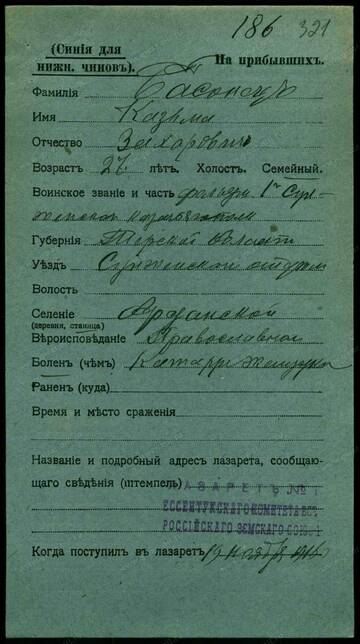 186 321
(Синія для
нижн. чиновъ). На прибывшихъ.
Фамилія
Имя Казьма
Отчество Захаровъ
Возрастъ 27 лѣтъ. Холостъ. Семейный.
Воинское званіе и часть 1го Сун-
женскаго
Губернія Терской Области
Уѣздъ Сунженской отдѣлъ
Волость
Селеніе
(деревня, станица)
Вѣроисповѣданіе Православное
Боленъ (чѣмъ) Катарръ желудка
Раненъ (куда)
Время и мѣсто сраженія
Названіе и подробный адресъ лазарета, сообщаю-
щаго свѣдѣнія (штемпель)
ЛАЗАРЕТЪ № 1
ЕССЕНТУКСКАГО КОМИТЕТА ВС.
РОССІЙСКАГО ЗЕМСКАГО СОЮЗА
Когда поступилъ въ лазаретъ 19 ноября